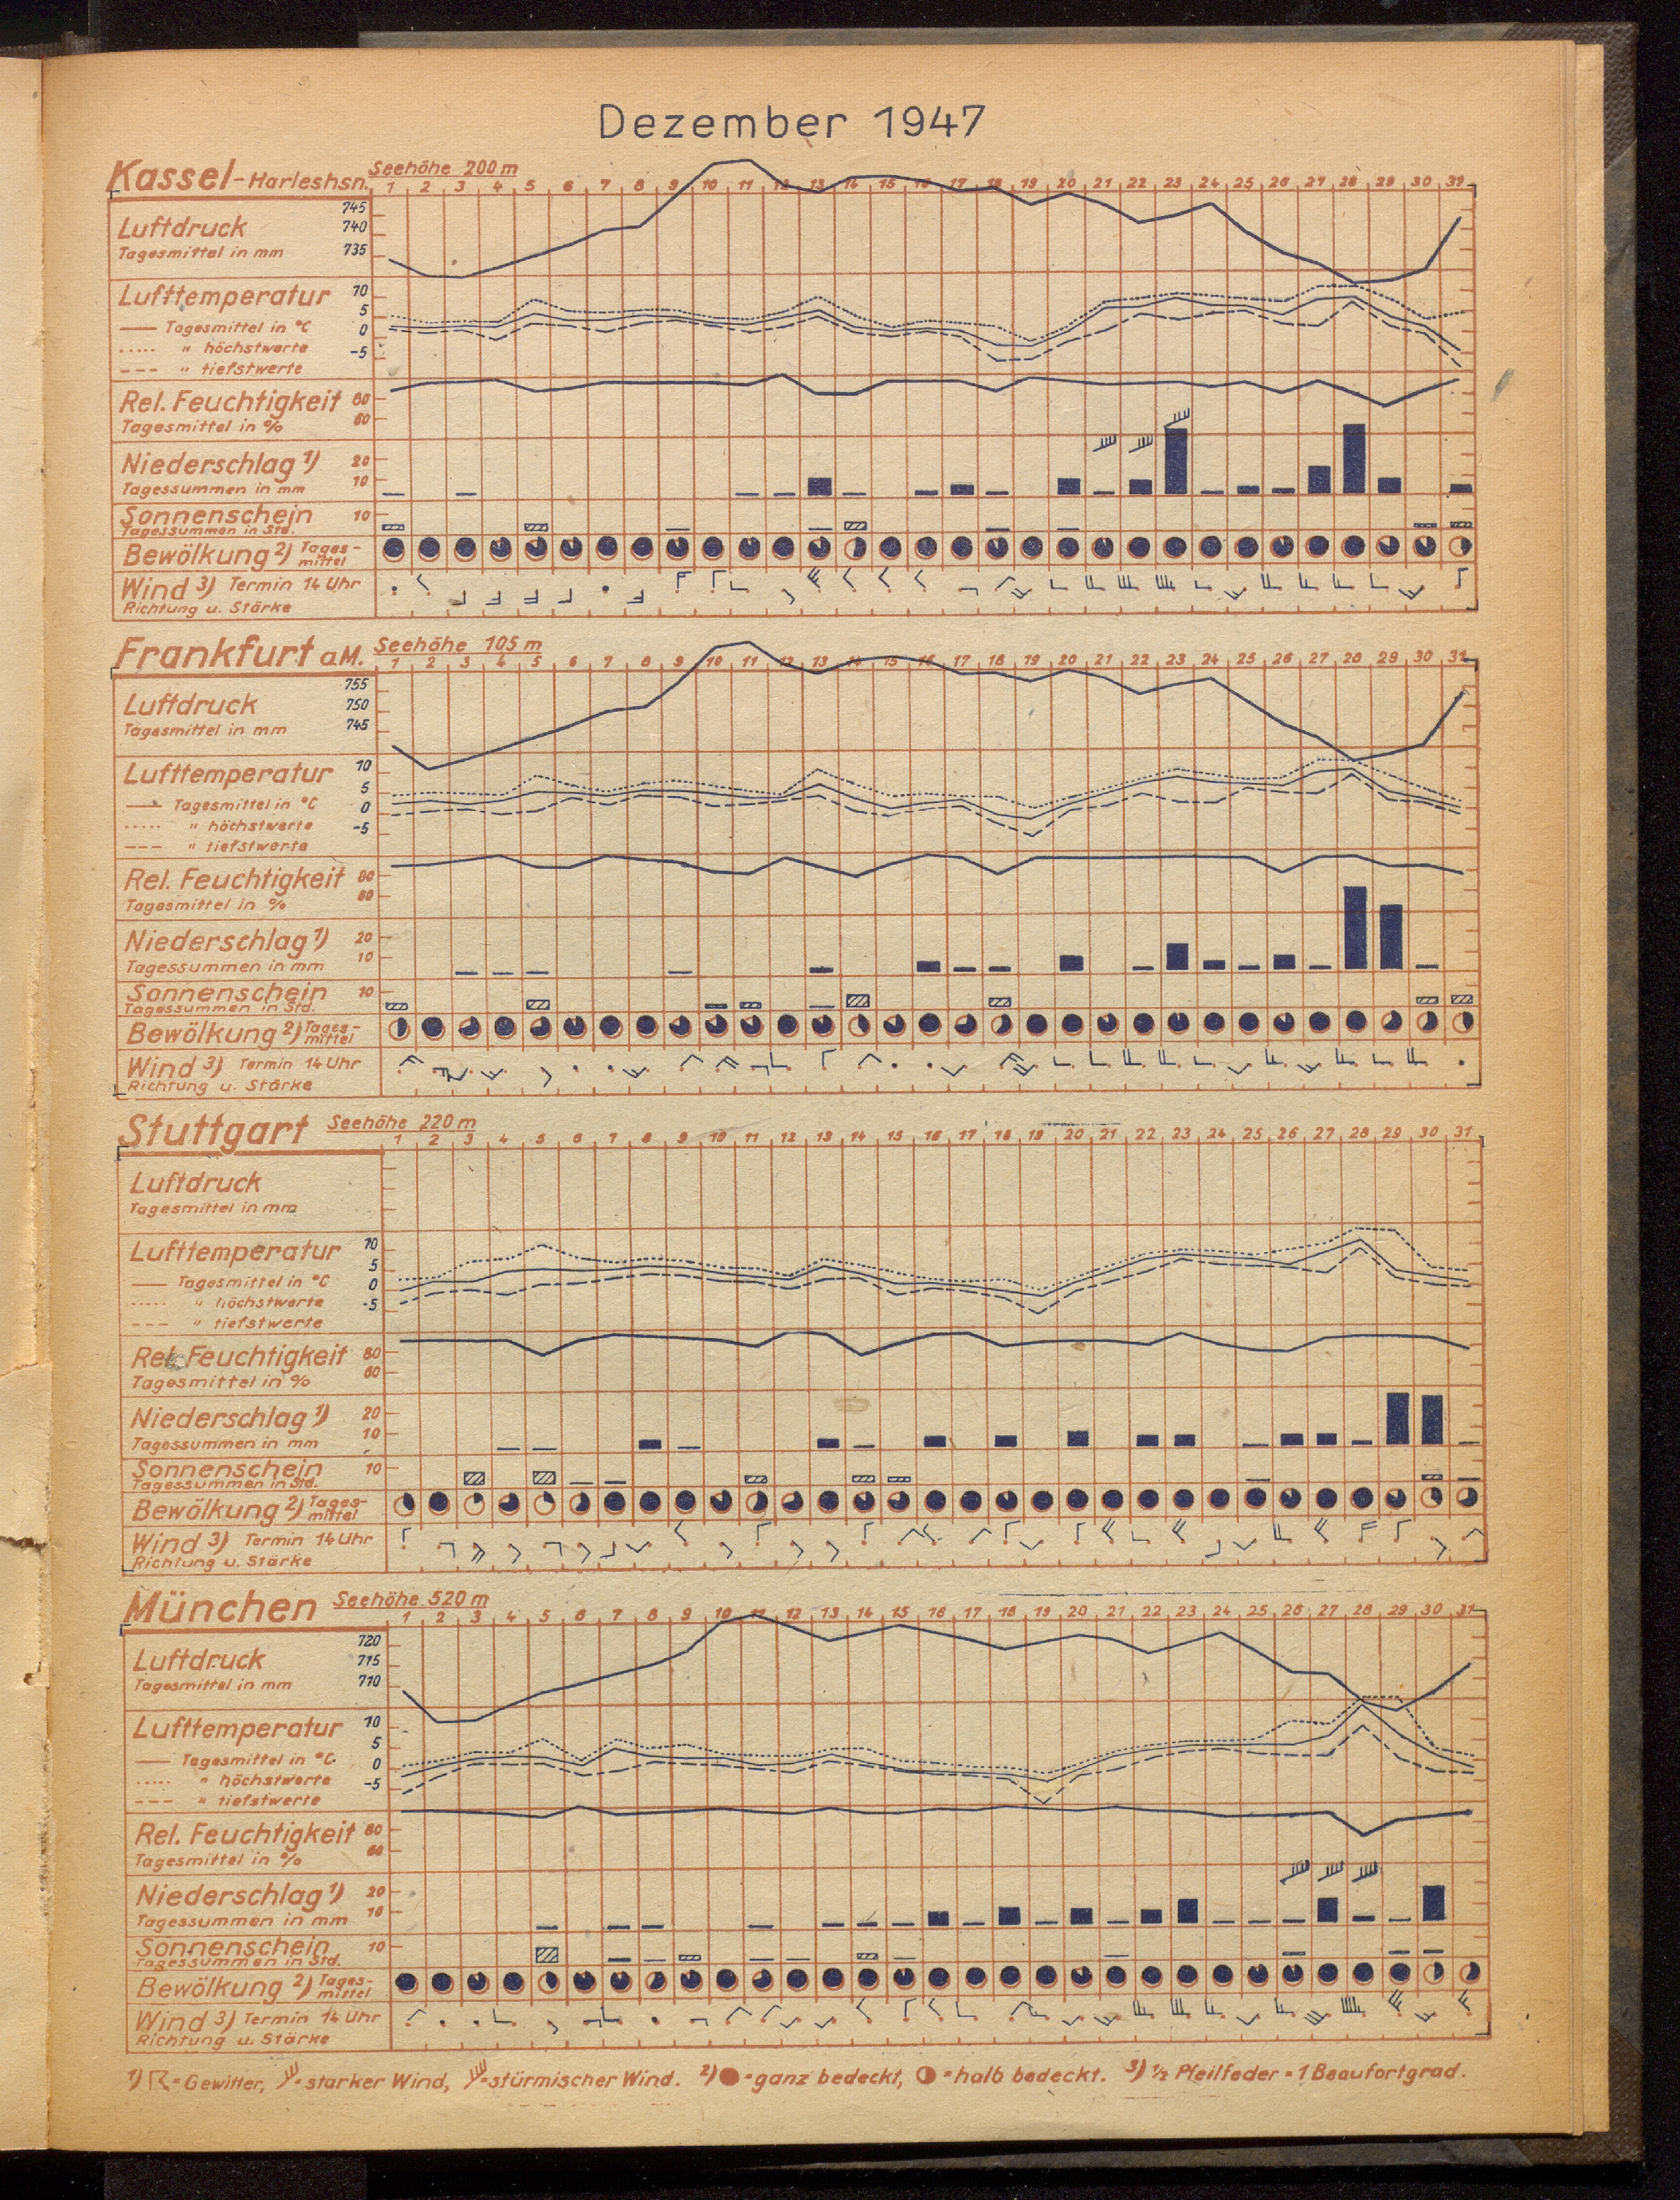 Dezember 1947
Kassel-Harleshsn. Seehöhe 200 m
1 2 3 4 5 6 7 8 9 10 11 12 13 14 15 16 17 18 19 20 21 22 23 24 25 26 27 28 29 30 31
Luftdruck 745
Tagesmittel in mm 740
735
Lufttemperatur 10
Tagesmittel in °C 5
" höchstwerte 0
" tiefstwerte -5
Rel. Feuchtigkeit 80
Tagesmittel in % 60
Niederschlag 1) 20
Tagessummen in mm 10
Sonnenschein 10
Tagessummen in Std.
Bewölkung 2) Tages-
mittel
Wind 3) Termin 14 Uhr
Richtung u. Stärke
Frankfurt a.M. Seehöhe 105 m
1 2 3 4 5 6 7 8 9 10 11 12 13 14 15 16 17 18 19 20 21 22 23 24 25 26 27 28 29 30 31
Luftdruck 755
Tagesmittel in mm 750
745
Lufttemperatur 10
Tagesmittel in °C 5
" höchstwerte 0
" tiefstwerte -5
Rel. Feuchtigkeit 80
Tagesmittel in % 60
Niederschlag 1) 20
Tagessummen in mm 10
Sonnenschein 10
Tagessummen in Std.
Bewölkung 2) Tages-
mittel
Wind 3) Termin 14 Uhr
Richtung u. Stärke
Stuttgart Seehöhe 220 m
1 2 3 4 5 6 7 8 9 10 11 12 13 14 15 16 17 18 19 20 21 22 23 24 25 26 27 28 29 30 31
Luftdruck
Tagesmittel in mm
Lufttemperatur 10
Tagesmittel in °C 5
" höchstwerte 0
" tiefstwerte -5
Rel. Feuchtigkeit 80
Tagesmittel in % 60
Niederschlag 1) 20
Tagessummen in mm 10
Sonnenschein 10
Tagessummen in Std.
Bewölkung 2) Tages-
mittel
Wind 3) Termin 14 Uhr
Richtung u. Stärke
München Seehöhe 520 m
1 2 3 4 5 6 7 8 9 10 11 12 13 14 15 16 17 18 19 20 21 22 23 24 25 26 27 28 29 30 31
Luftdruck 720
Tagesmittel in mm 715
710
Lufttemperatur 10
Tagesmittel in °C 5
" höchstwerte 0
" tiefstwerte -5
Rel. Feuchtigkeit 80
Tagesmittel in % 60
Niederschlag 1) 20
Tagessummen in mm 10
Sonnenschein 10
Tagessummen in Std.
Bewölkung 2) Tages-
mittel
Wind 3) Termin 14 Uhr
Richtung u. Stärke
1) = Gewitter, = starker Wind, = stürmischer Wind. 2) = ganz bedeckt, = halb bedeckt. 3) ½ Pfeilfeder = 1 Beaufortgrad.